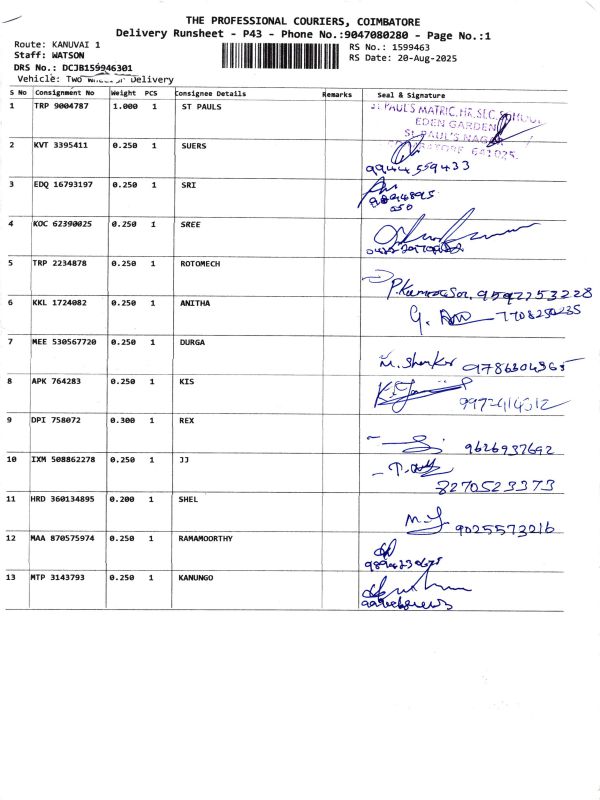 THE PROFESSIONAL COURIERS, COIMBATORE
Delivery Runsheet - P43 - Phone No.:9047080280 - Page No.:1
Route: KANUVAI 1
RS No.: 1599463
Staff: WATSON
RS Date: 20-Aug-2025
DRS No.: DCJB159946301
Vehicle: Two Wheeler Delivery
S No Consignment No Weight PCS Consignee Details Remarks Seal & Signature
1 TRP 9004787 1.000 1 ST PAULS
ST. PAUL'S MATRIC. HR. SEC. SCHOOL
EDEN GARDEN
ST. PAUL'S NAGAR
COIMBATORE 641025.
2 KVT 3395411 0.250 1 SUERS
9944559433
3 EDQ 16793197 0.250 1 SRI
4 KOC 62390025 0.250 1 SREE
5 TRP 2234878 0.250 1 ROTOMECH
6 KKL 1724082 0.250 1 ANITHA
7708250235
7 MEE 530567720 0.250 1 DURGA
9786304365
8 APK 764283 0.250 1 KIS
9 DPI 758072 0.300 1 REX
9626937692
10 IXM 508862278 0.250 1 JJ
8270523373
11 HRD 360134895 0.200 1 SHEL
9025573216
12 MAA 870575974 0.250 1 RAMAMOORTHY
13 MTP 3143793 0.250 1 KANUNGO